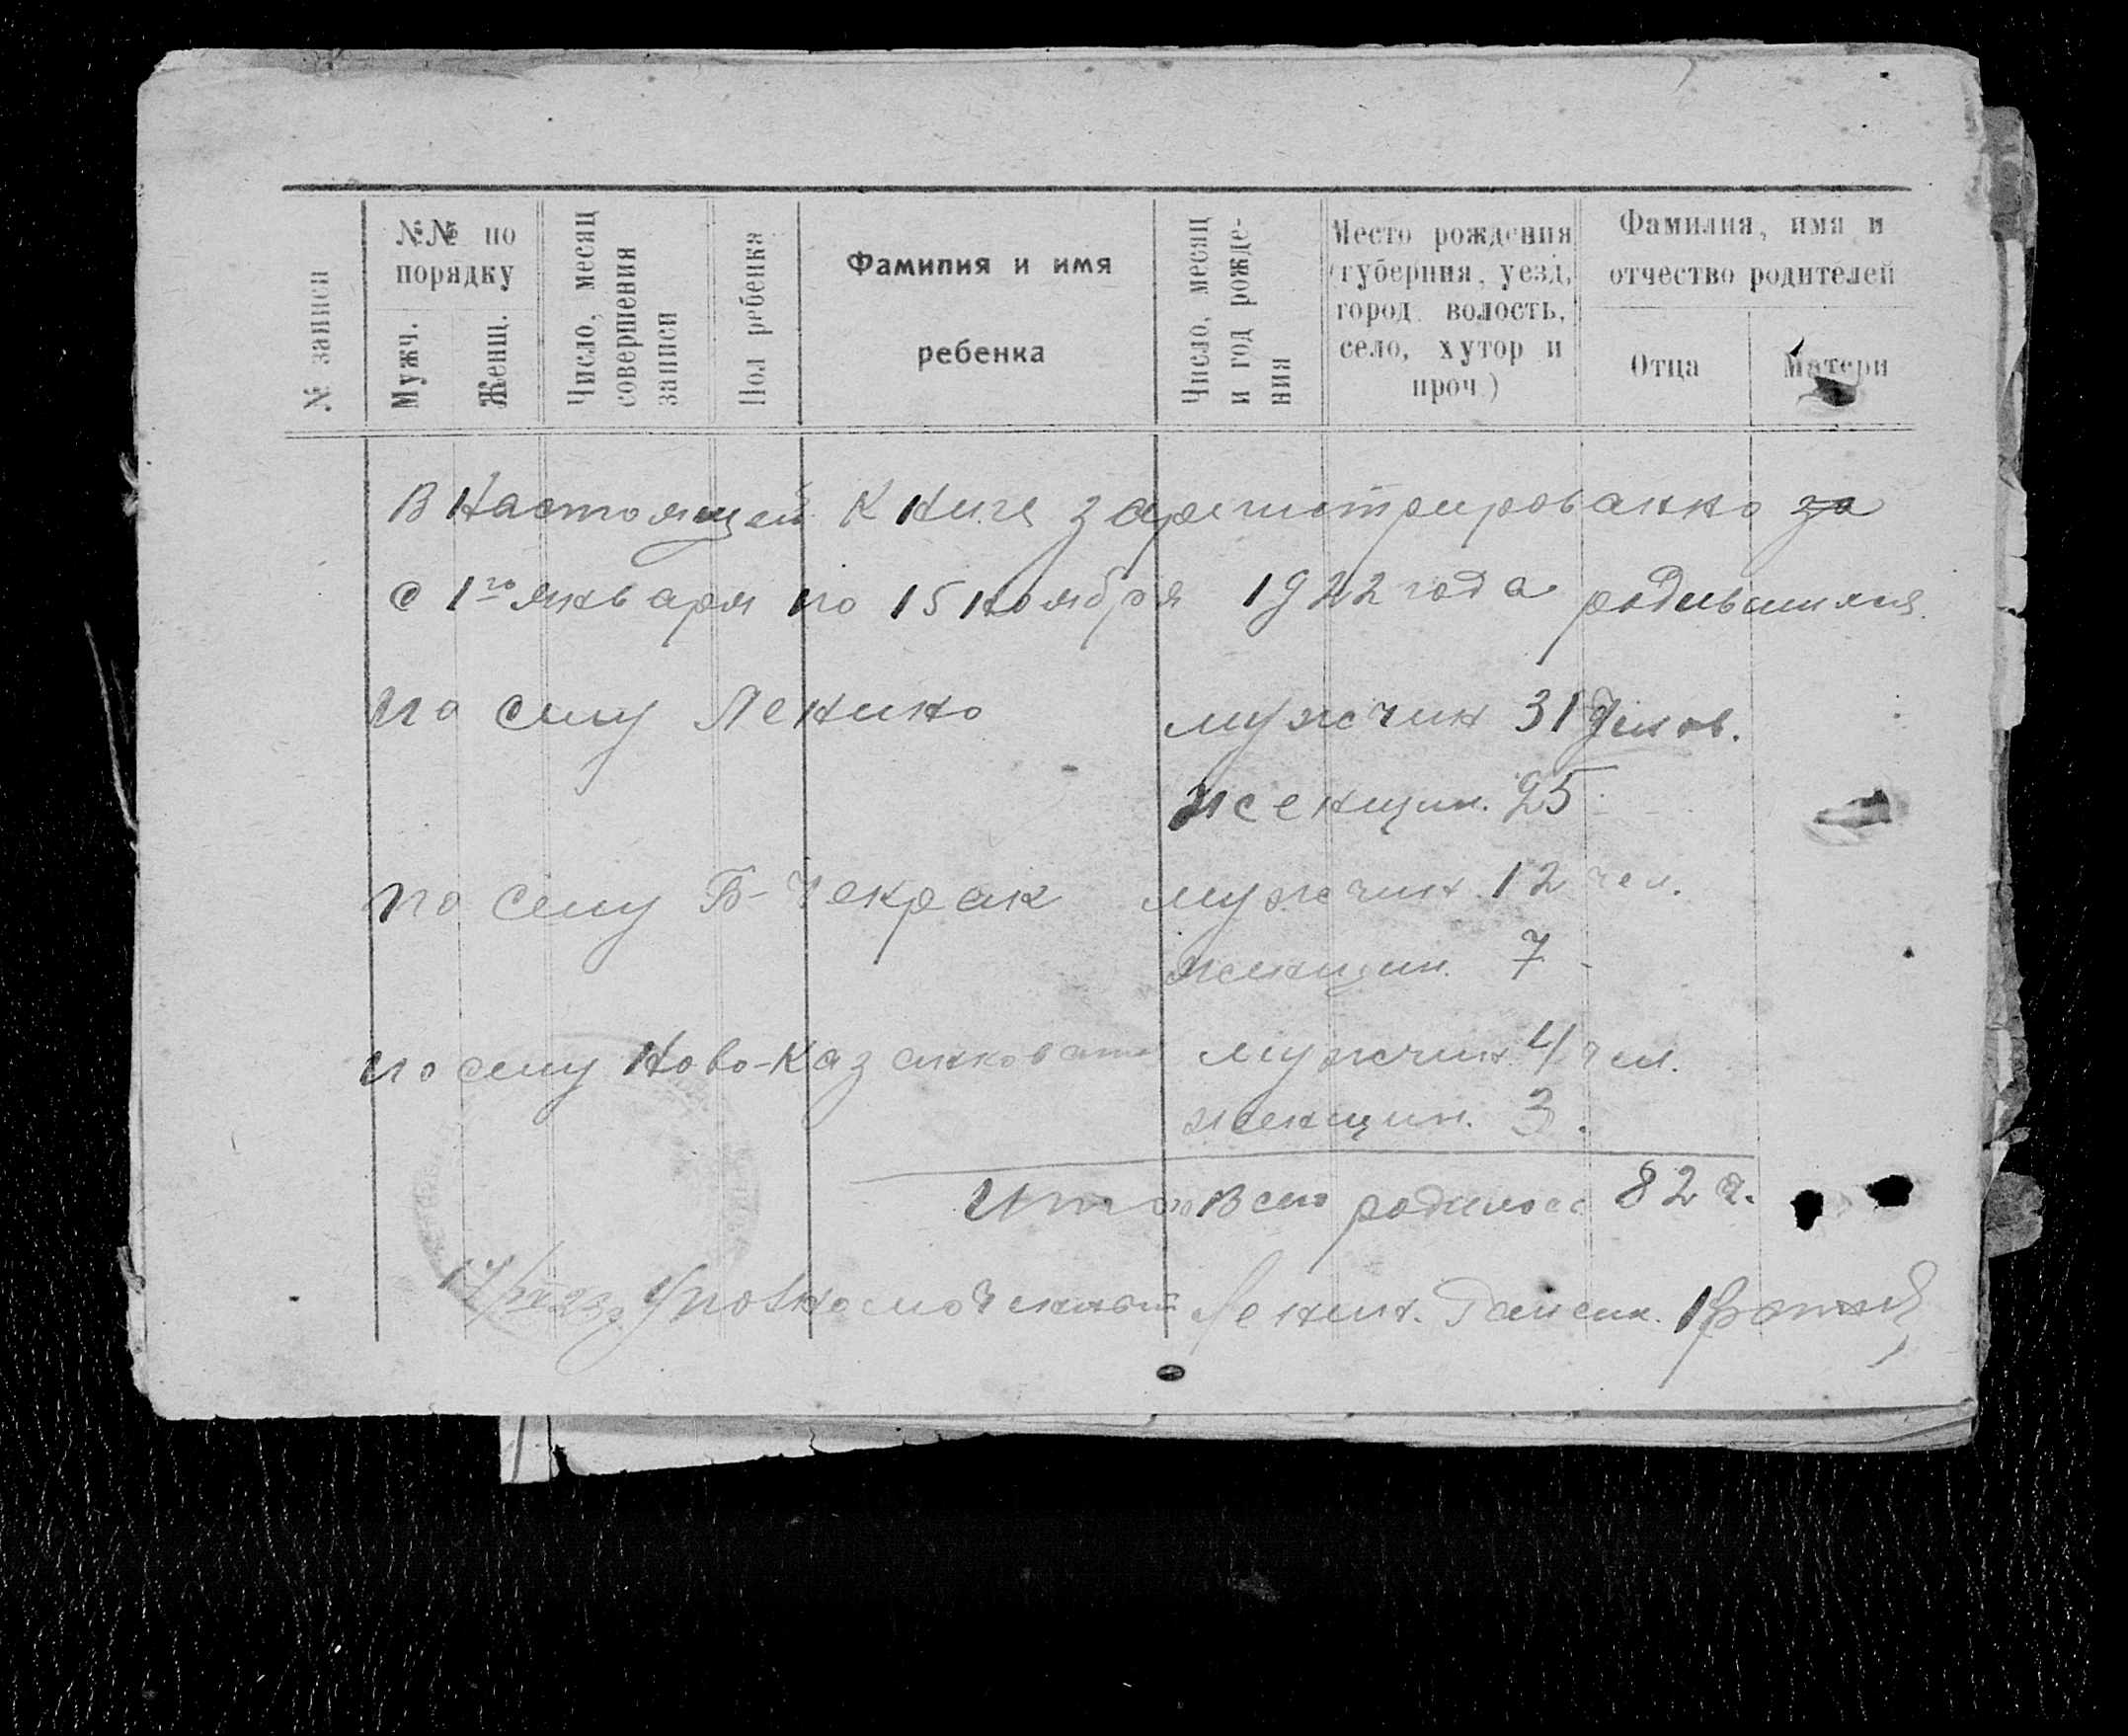 № записи
№№ по порядку
Мужч.
Женщ.
Число, месяц совершения записи
Пол ребенка
Фамилия и имя
ребенка
Число, месяц и год рождения
Место рождения
(губерния, уезд,
город, волость,
село, хутор и
проч.)
Фамилия, имя и
отчество родителей
Отца
Матери
В Настоящей Книге зарегистрированно за
с 1го января по 15 ноября 1922 года родившихся
по селу Ленино мужчин 31 челов.
женщин. 25
по селу Б-Чекрак мужчин. 12 чел.
женщин. 7 -
по селу Ново-Казанковати мужчин 4 чел.
женщин. 3.
Итого Всего родилось 82 ч.
Уполномоченный Ленин.